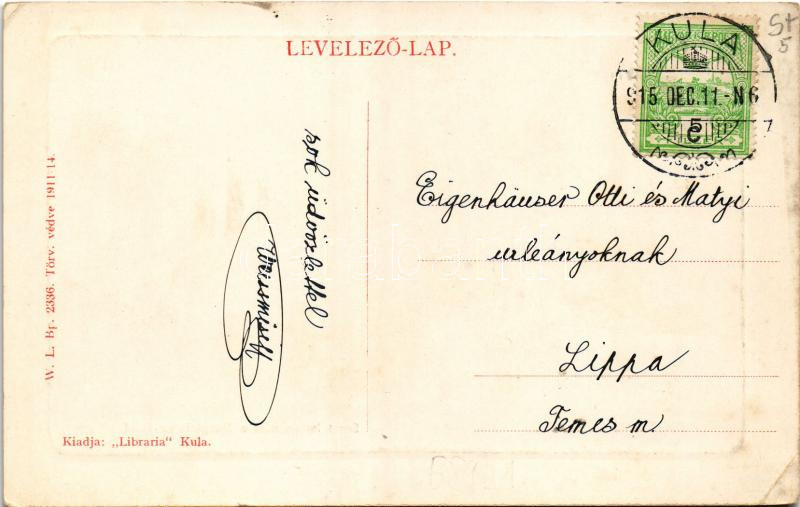 LEVELEZŐ-LAP.
St
5
KULA
915 DEC.11.-N6
5
C
sok üdvözlettel
Eigenhäuser Otti és Matyi
urleányoknak
Lippa
Temes m.
W. L. Bp. 2336. Törv. védve 1911-14.
Kiadja: „Libraria" Kula.